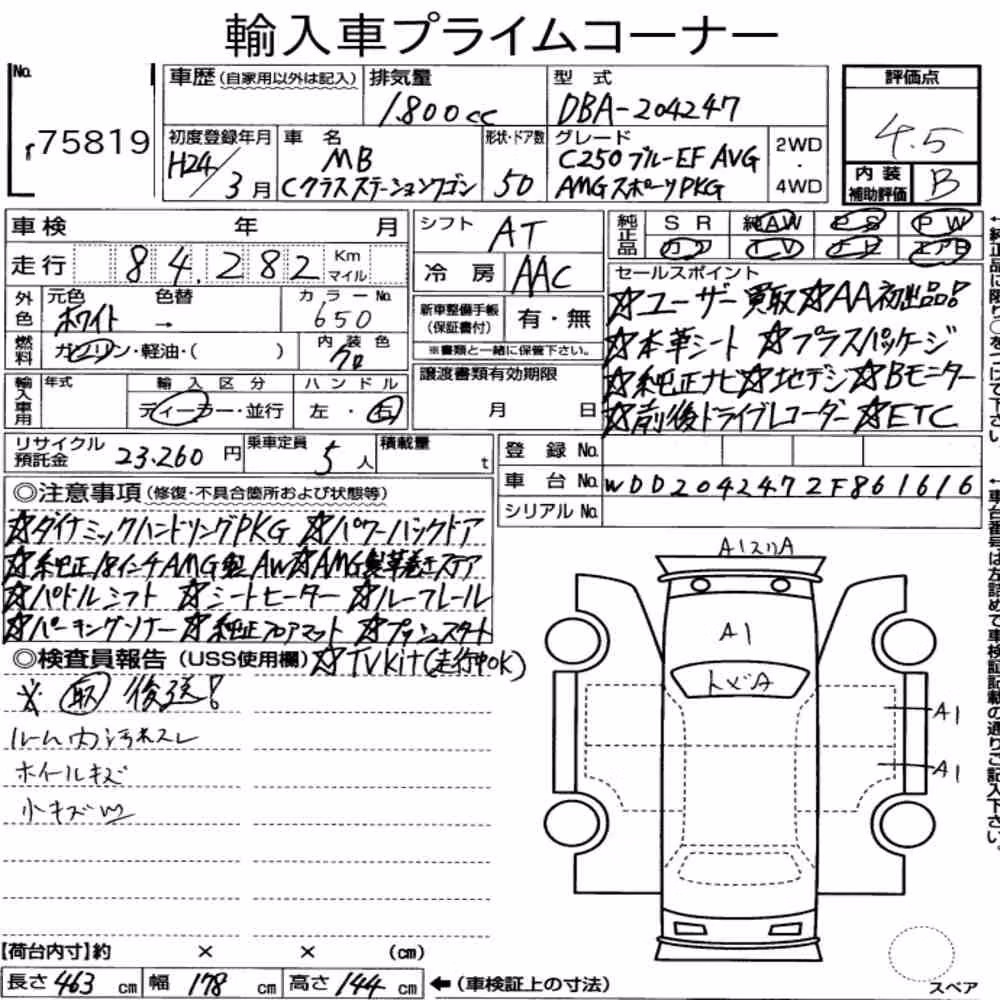 輸入車プライムコーナー
No.
75819
車歴 (自家用以外は記入)
排気量
1.800cc
型式
DBA-204247
評価点
4.5
内装補助評価
B
初度登録年月
H24/3月
車名
MB
Cクラスステーションワゴン
形状・ドア数
5D
グレード
C250ブルーEF AVG
AMGスポーツPKG
2WD
・
4WD
車検 年 月
走行 84,282 Km マイル
シフト
AT
冷房 AAC
純正品
SR 純AW PS PW
カワ TV ナビ エアB
外色
元色 色替
ホワイト →
カラーNo.
650
燃料
ガソリン・軽油・( )
内装色
クロ
新車整備手帳
(保証書付)
有・無
※書類と一緒に保管下さい。
輸入車用
年式
輸入区分
ディーラー・並行
ハンドル
左・右
譲渡書類有効期限
月 日
セールスポイント
☆ユーザー買取☆AA初出品!
☆本革シート ☆プラスパッケージ
☆純正ナビ☆地デジ☆Bモニター
☆前後ドライブレコーダー☆ETC
←純正品に限り○をつけて下さい。
リサイクル預託金
23.260円
乗車定員
5人
積載量
t
登録No.
車台No.
WDD2042472F861616
シリアルNo.
←車台番号は左詰めで車検証記載の通りご記入下さい。
◎注意事項(修復・不具合箇所および状態等)
☆ダイナミックハンドリングPKG ☆パワーバックドア
☆純正18インチAMG製AW☆AMG製革巻きステア
☆パドルシフト ☆シートヒーター ☆ルーフレール
☆パーキングソナー☆純正フロアマット ☆プッシュスタート
◎検査員報告(USS使用欄)☆TVkit(走行中OK)
※ 取 後送!
ルーム内汚れスレ
ホイールキズ
小キズ
A1スリA
A1
トビA
A1
A1
【荷台内寸】約 × × (cm)
長さ 463 cm 幅 178 cm 高さ 144 cm ←(車検証上の寸法)
スペア